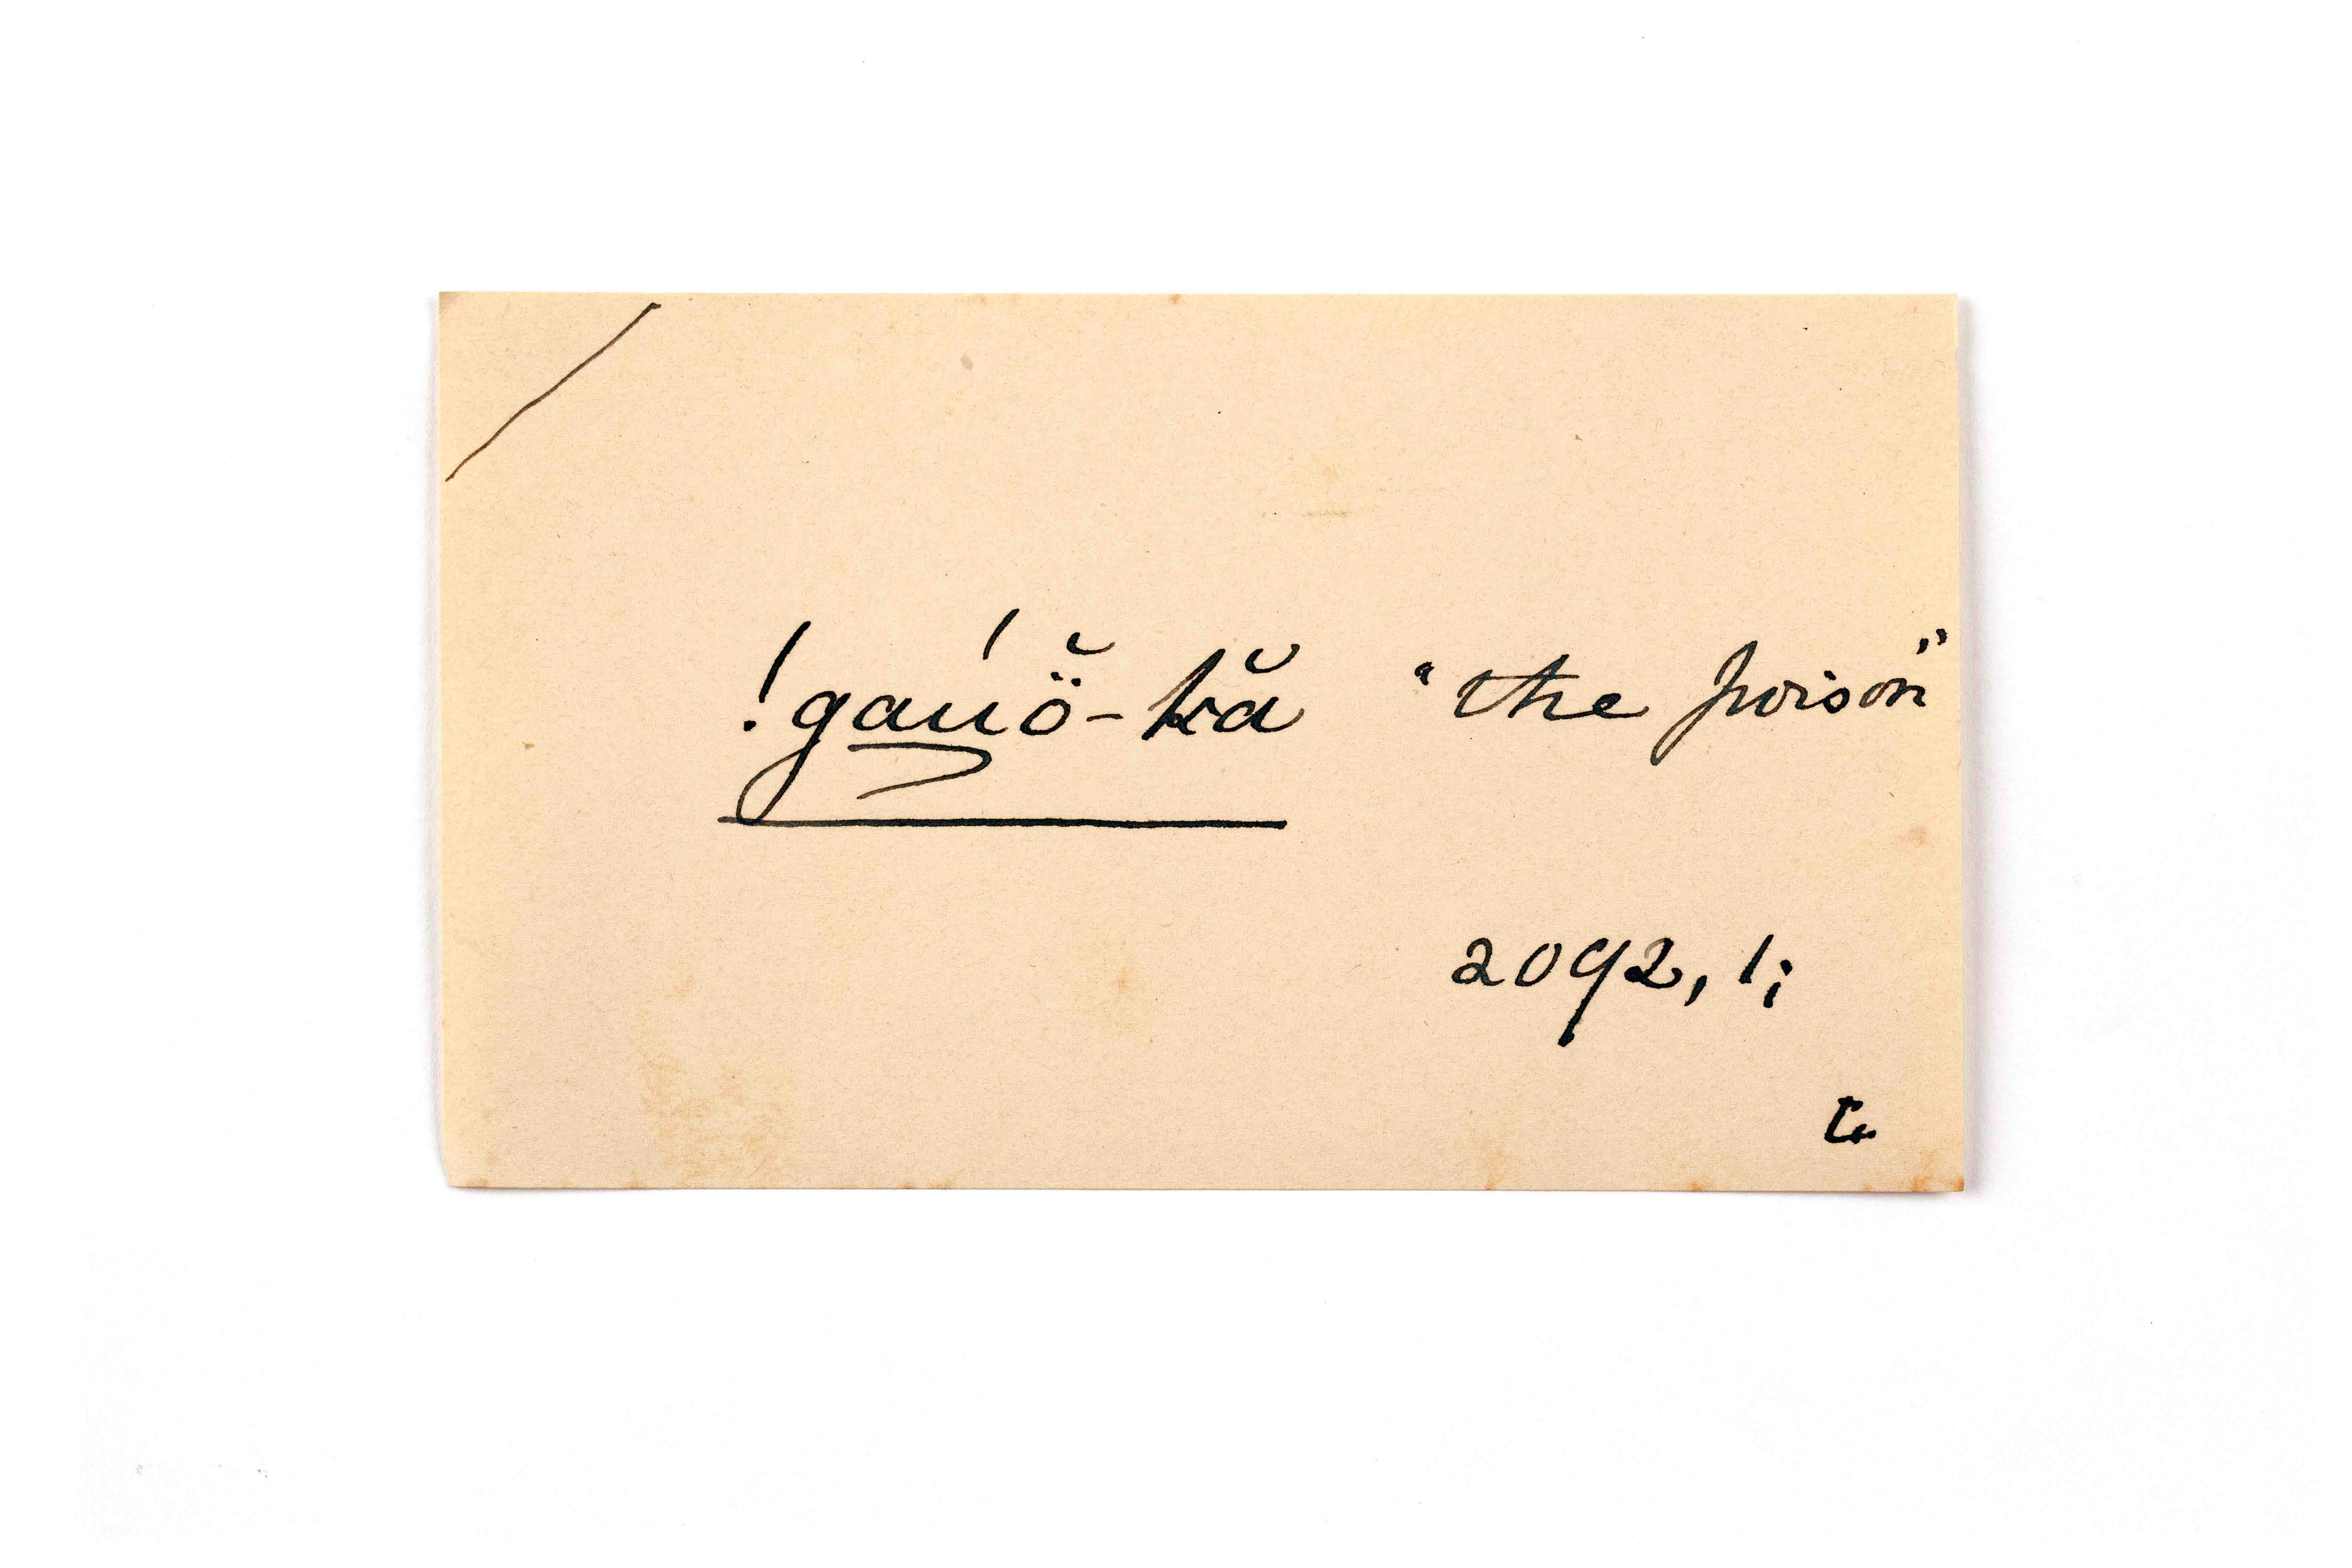 !gaúö̆-kă "the poison"
2092, 1;